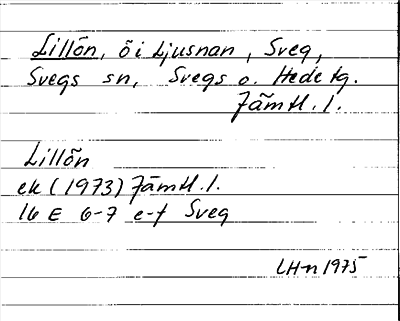 Lillön, ö i Ljusnan, Sveg,
Svegs sn, Svegs o. Hede tg.
Jämtl. l.
Lillön
ek (1973) Jämtl. l.
16 E 6-7 e-f Sveg
LH-n 1975